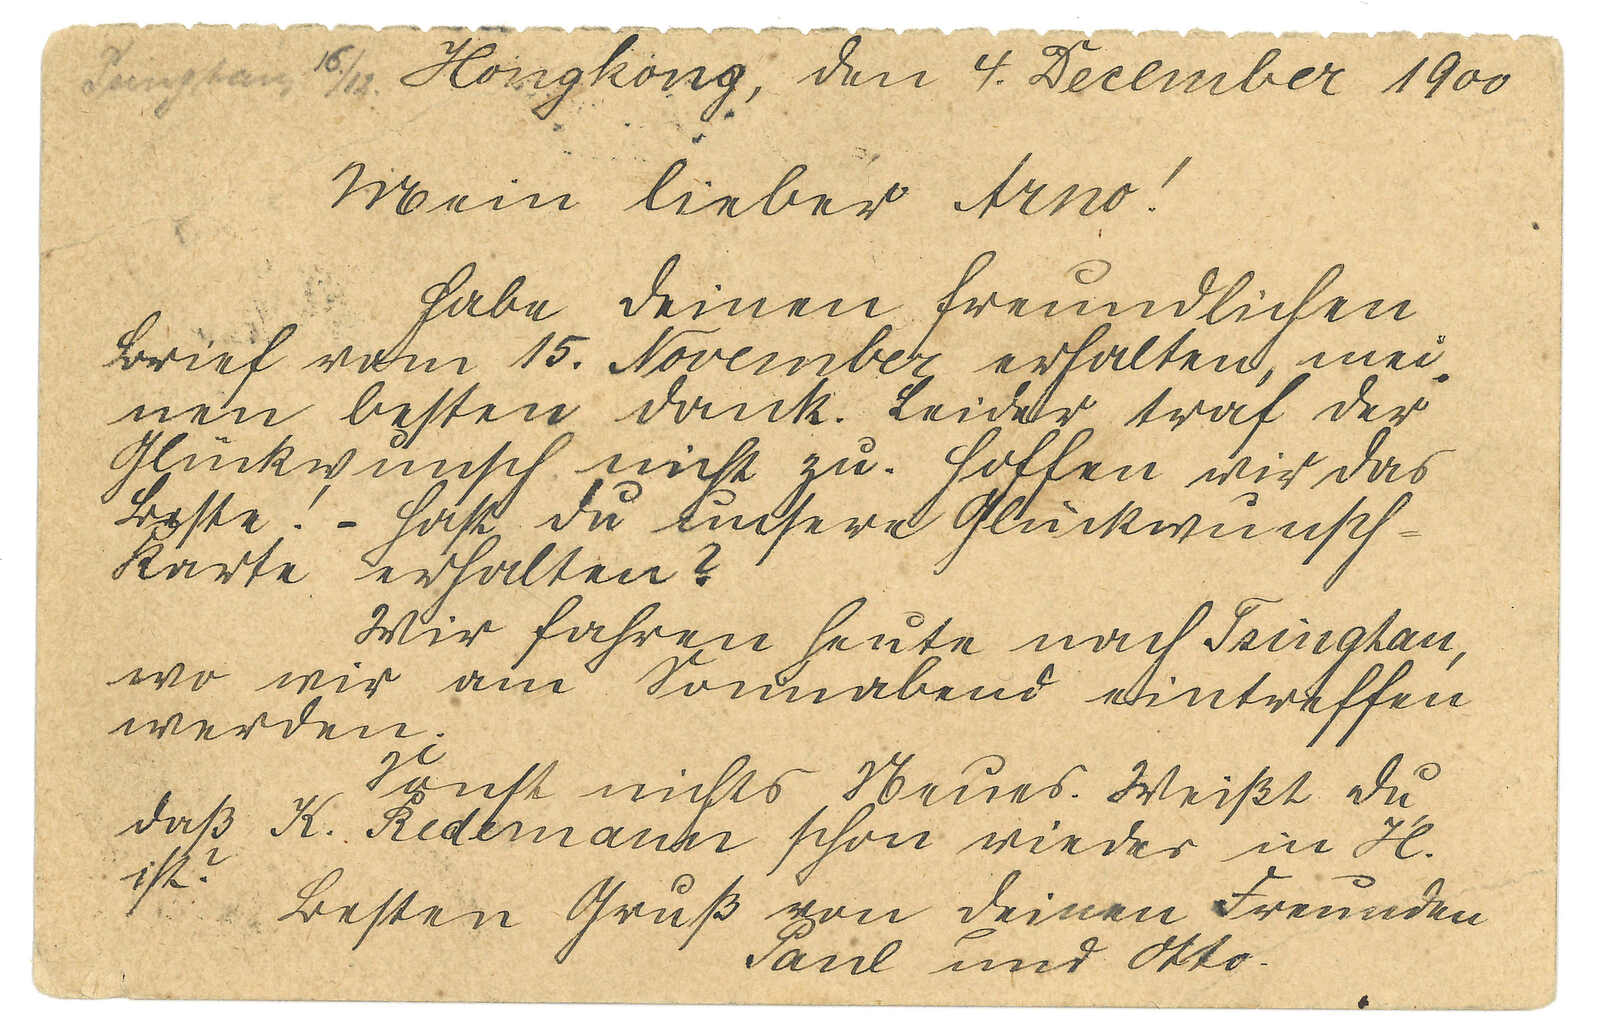 Tsingtau, 16/12.
Hongkong, den 4. December 1900
Mein lieber Arno!
Habe deinen freundlichen
Brief vom 15. November erhalten, mei-
nen besten Dank. Leider traf der
Glückwunsch nicht zu. Hoffen wir das
Beste! - Hast du unsere Glückwunsch-
karte erhalten?
Wir fahren heute nach Tsingtau,
wo wir am Sonnabend eintreffen
werden.
Sonst nichts Neues. Weißt du
daß K. Redemann schon wieder in H.
ist?
Besten Gruß von deinen Freunden
Paul und Otto.